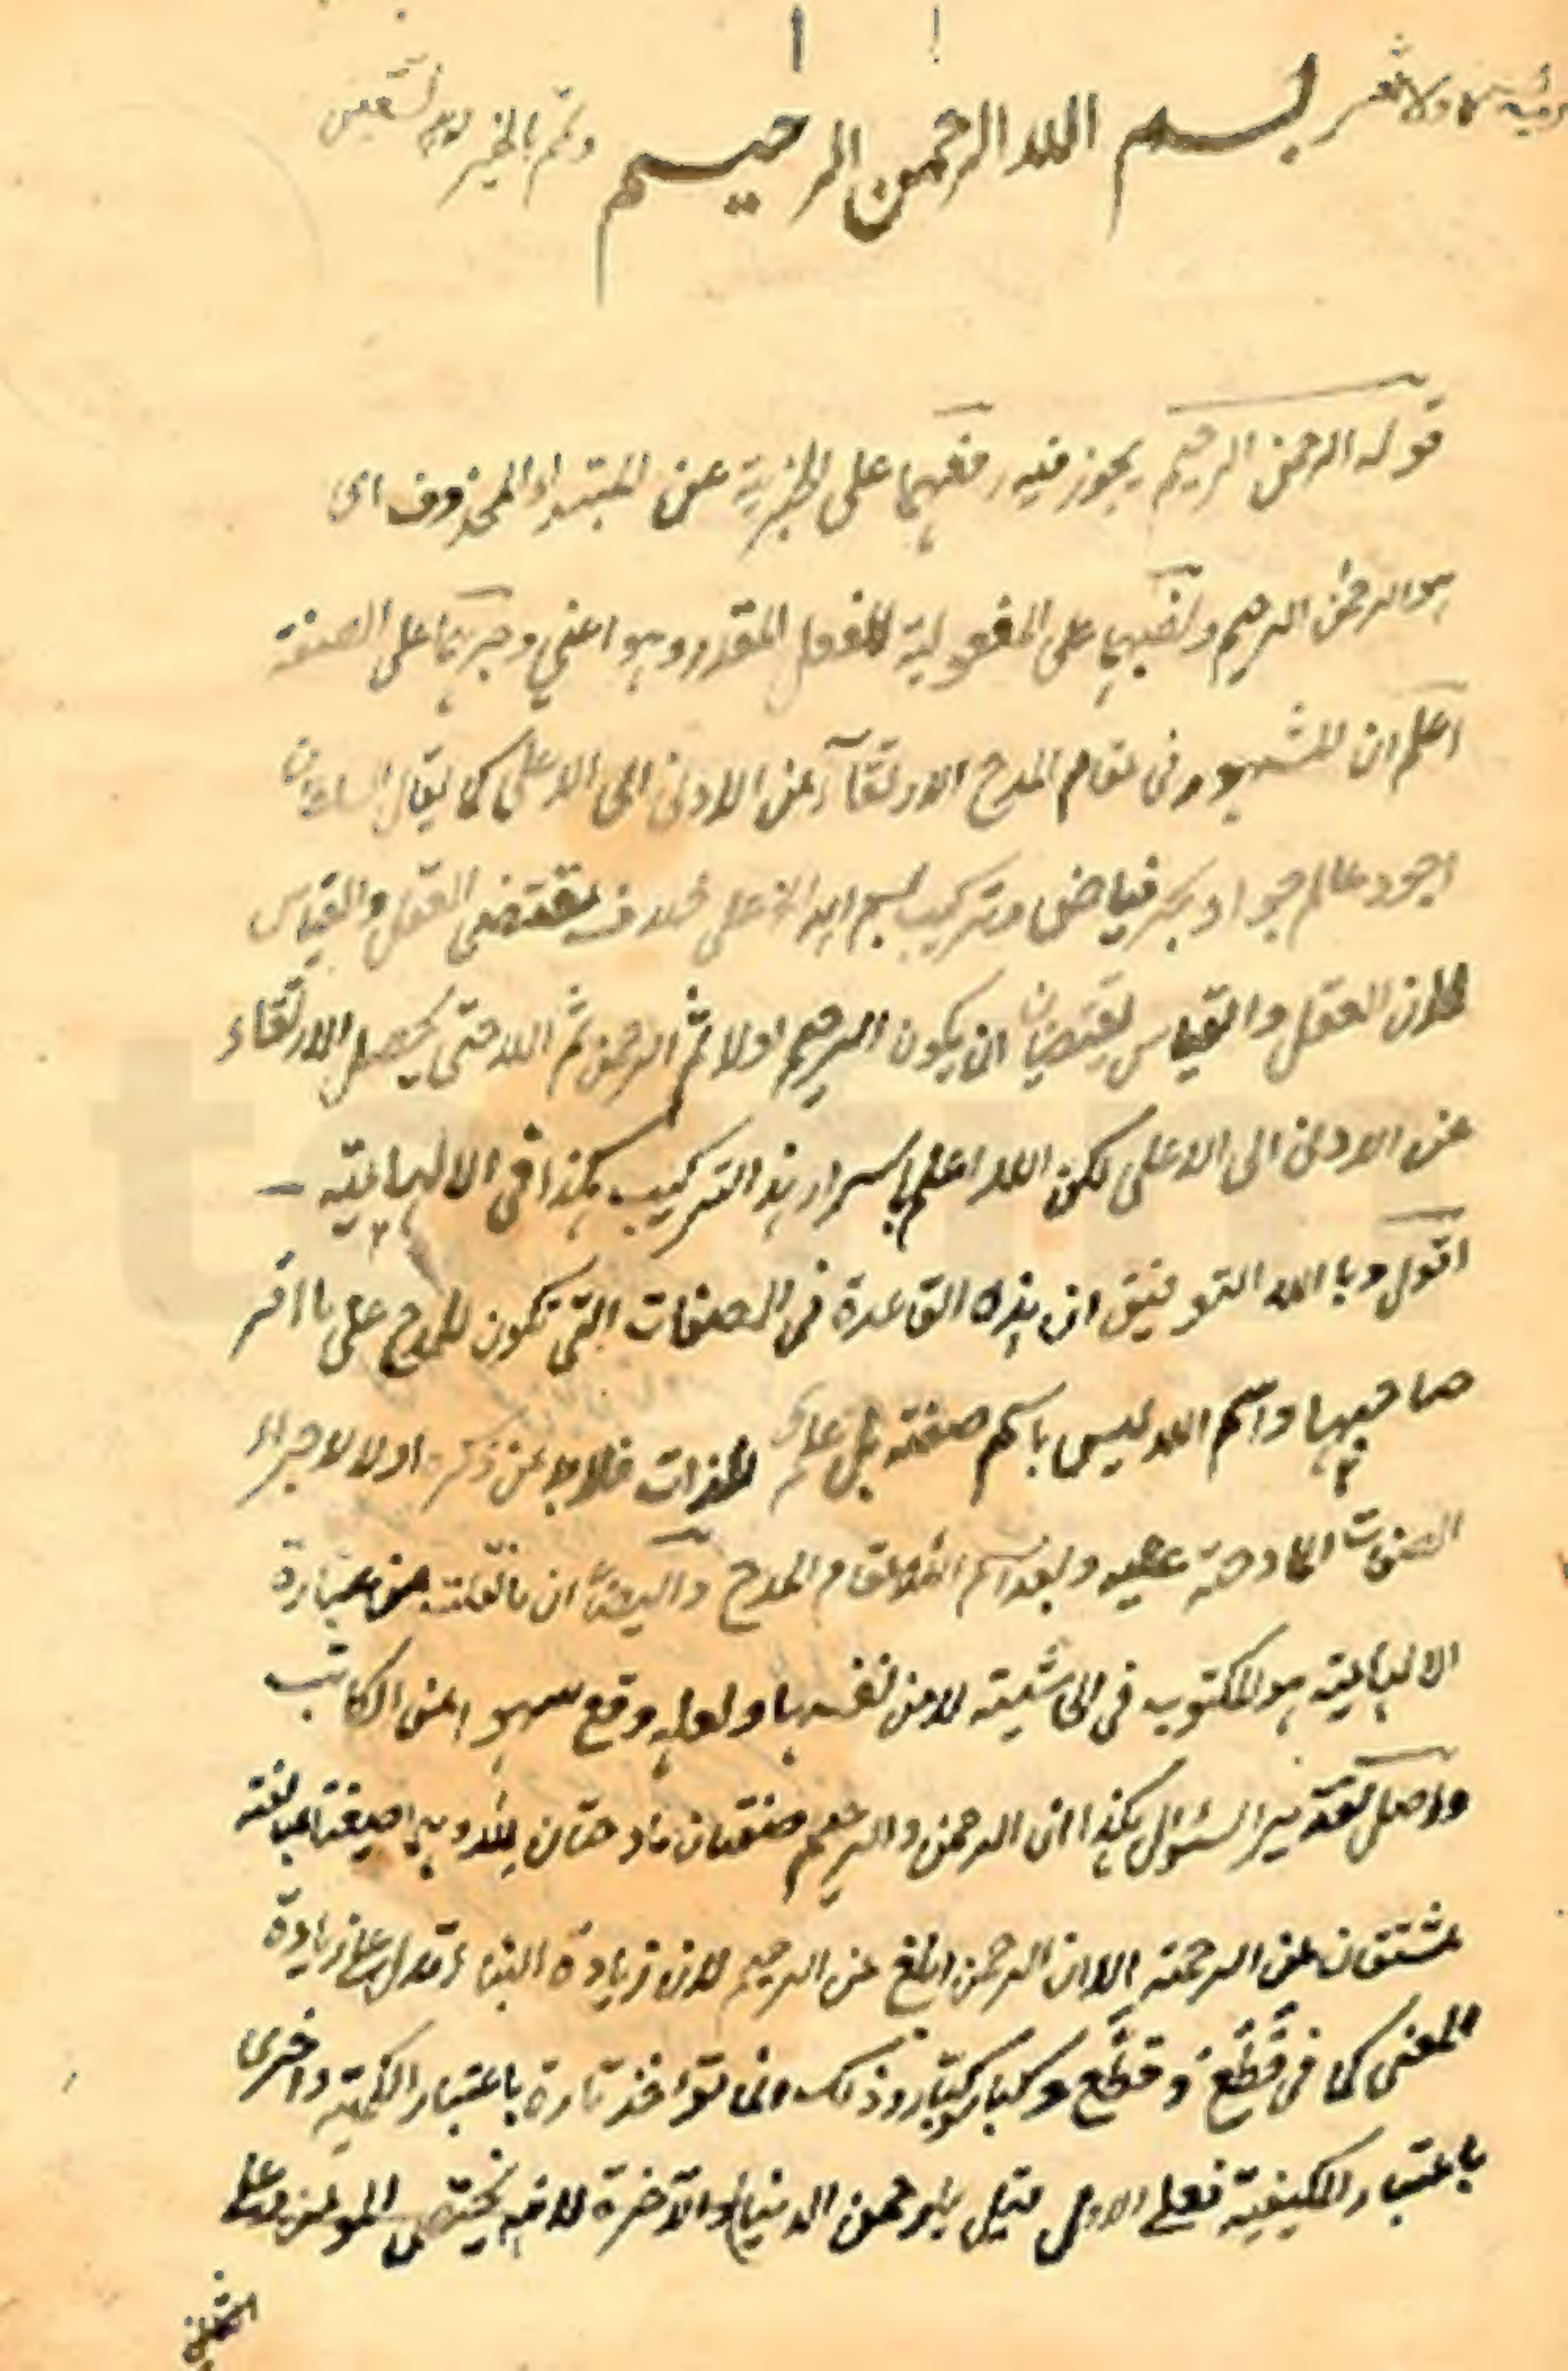 رب يسر ولا تعسر بسم الله الرحمن الرحيم وتمم بالخير وبه نستعين
قوله الرحمن الرحيم يجوز فيه رفعهما على الخبرية عن المبتداء المحذوف اى
هو الرحمن الرحيم ونصبهما على المفعولية للفعل المقدر وهو اعني وجرهما على الصفة
اعلم ان المشهور فى مقام المدح الارتقآء من الادنى الى الاعلى كما يقال
اجود عالم جواد بكر فياض وتركيب بسم الله الاعلى خلاف مقتضى العقل والقياس
لان العقل والقياس يقتضيان ان يكون الرحيم اولا ثم الرحمن ثم الله حتى يحصل الارتقاء
من الادنى الى الاعلى لكن الله اعلم باسرار هذا التركيب هكذا فى الالهامية
اقول وبا الله التوفيق ان هذه القاعدة فى الصفات التى تكون للمدح على
صاحبها واسم الله ليس باسم صفة بل علم للذات فلا بد من ذكره اولا لاجراء
الصفات المادحة عليه وايضا ان ما نقلت من عبارة
الالهامية هو المكتوب فى الحاشية لا من نفسها ولعله وقع سهو من الكاتب
واصل تقدير السؤال هكذا ان الرحمن والرحيم صفتان مادحتان لله وهما صيغتا مبالغة
مشتقان من الرحمة الا ان الرحمن ابلغ من الرحيم لان زيادة البناء تدل على زيادة
المعنى كما فى قطع وقطّع وكبار وكبّار وذلك انما تؤاخذ تارة باعتبار الكمية واخرى
باعتبار الكيفية فعلى الاول قيل يا رحمن الدنيا والآخرة لانه يختص المؤمن وعلى